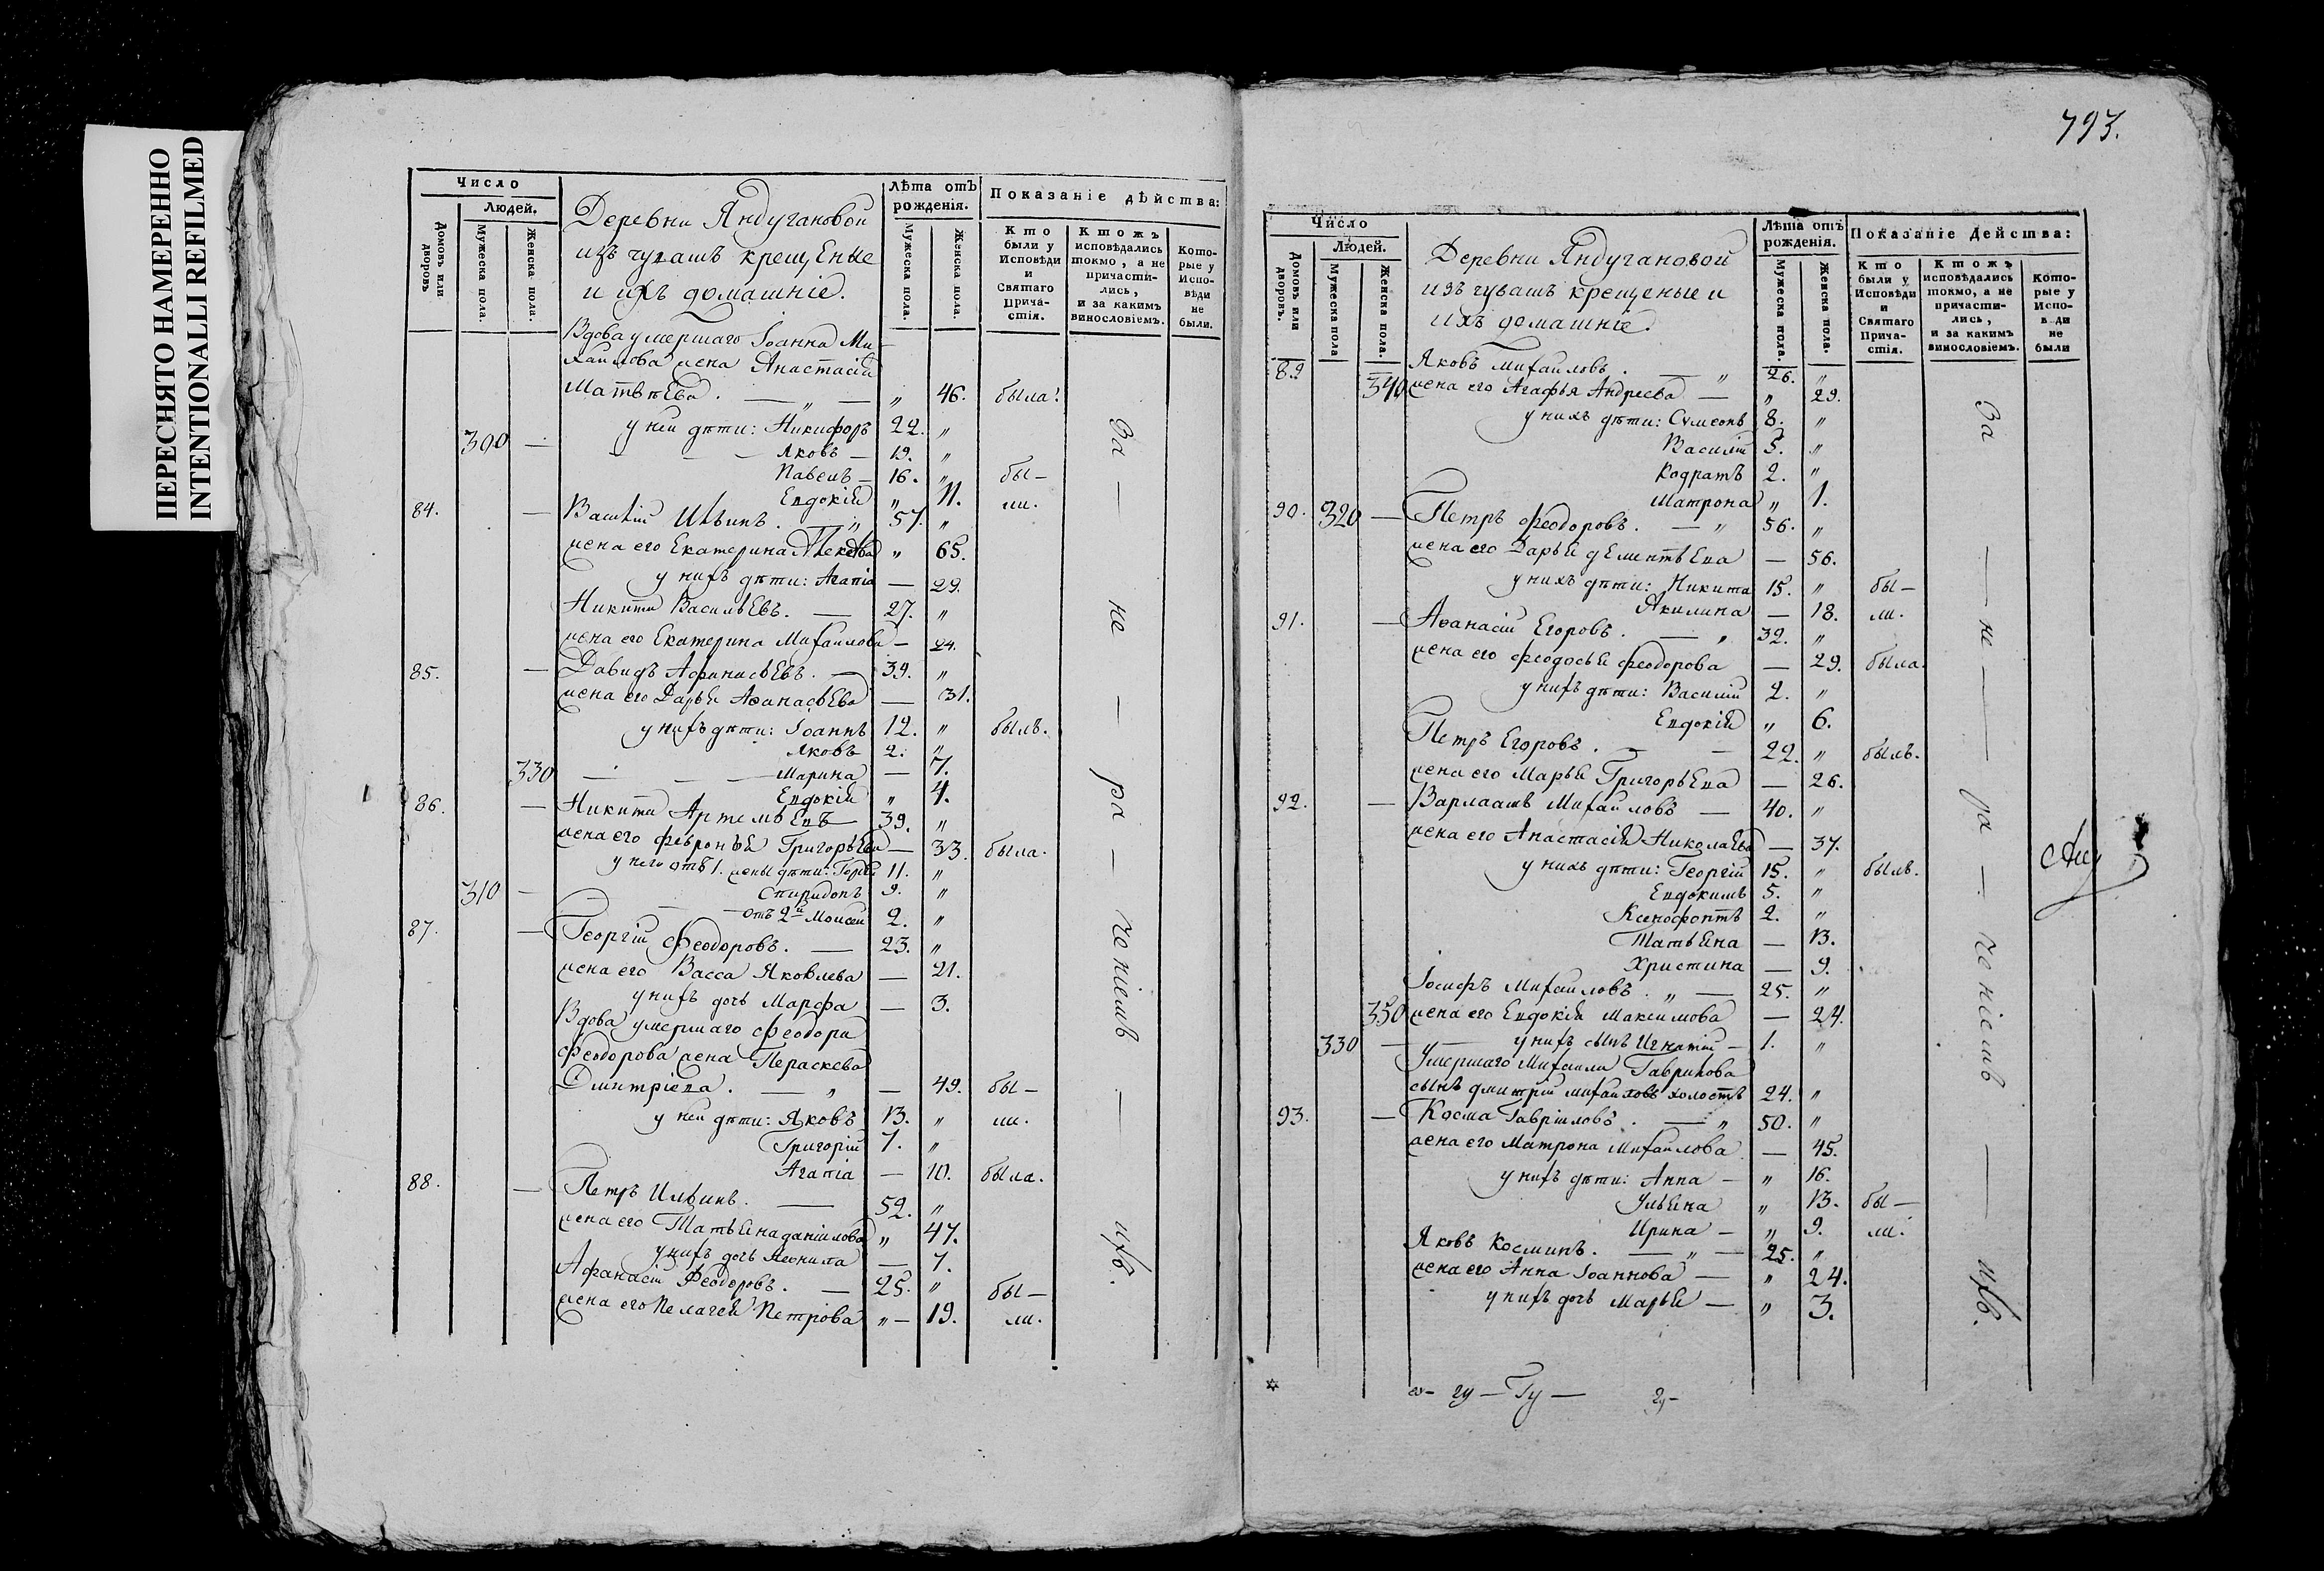 ПЕРЕСНЯТО НАМЕРЕННО
INTENTIONALLI REFILMED
Число
Людей.
Домовъ или дворовъ
Мужеска пола.
Женска пола.
Деревни Яндугановой
изъ чувашъ крещеные
и ихъ домашніе.
Лѣта отъ рожденія.
Мужеска пола.
Женска пола.
Показаніе дѣйства:
Кто были у Исповѣди и Святаго Прича-стія.
Ктожъ исповѣдались токмо, а не причасти-лись, и за какимъ винословіемъ.
Кото-рые у Испо-вѣди не были.
Вдова умершаго Іоанна Ми-
хайлова жена Анастасія
Матвѣева. — „ — „ 46. была.
у ней дѣти: Никифоръ 22. „
300 — Яковъ — 19. „
Павелъ — 16. „ бы-
Евдокія „ 11. ли.
84. — Василій Ильинъ. — „ 57. „
жена его Екатерина „ 65.
у нихъ дѣти: Агапія — 29.
Никита Васильевъ. — 27. „
жена его Екатерина Михайлова — 24.
85. — Давидъ Афанасьевъ. — 39. „
жена его Дарья Аѳанасьева — 31.
у нихъ дѣти: Іоаннъ 12. „ былъ.
Яковъ 2. „
330 — Марина — 7.
Евдокія „ 4.
86. — Никита Артемьевъ 39. „
жена его Февронья Григорьева — 33. была.
у него отъ 1. жены дѣти: 11. „
310 — Спиридонъ 9. „
отъ 2й Моисей 2. „
87. — Георгій Феодоровъ. — 23. „
жена его Васса Яковлева — 21.
у нихъ дочь Марфа — 3.
Вдова умершаго Феодора
Феодорова жена Пераскева
Дмитріева. — „ — 49. бы-
у ней дѣти: Яковъ 13. „ ли.
Григорій 7. „
Агапія — 10. была.
88. — Петръ Ильинъ. — 52. „
жена его Татьяна Даніилова „ 47.
у нихъ дочь Неонила — 7.
Афанасій Феодоровъ. — 25. „ бы-
жена его Пелагея Петрова „ — 19. ли.
За — не — ра — ченіемъ — ихъ.
793.
Число
Людей.
Домовъ или дворовъ.
Мужеска пола
Женска пола.
Деревни Яндугановой
изъ чувашъ крещеные и
ихъ домашніе.
Лѣта отъ рожденія.
Мужеска пола.
Женска пола.
Показаніе Действа:
Кто были у Исповѣди и Святаго Прича-стія.
Ктожъ исповѣдались токмо, а не причасти-лись, и за какимъ винословіемъ.
Кото-рые у Испо-в ди не были
89 Яковъ Михайловъ. — „ 26. „
340 жена его Агафья Андреева — „ 29.
у нихъ дѣти: Сумеонъ 8. „
Василій 5. „
Кодратъ 2. „
Матрона „ 1.
90. 320 — Петръ Феодоровъ. — „ 56. „
жена его Дарья Дементьева — 56.
у нихъ дѣти: Никита 15. „ бы-
Акилина — 18. ли.
91. — Аѳанасій Егоровъ. — „ 32. „
жена его Феодосья Феодорова — 29. была.
у нихъ дѣти: Василій 2. „
Евдокія „ 6.
Петръ Егоровъ. — 22. „ былъ.
жена его Марья Григорьева — 26.
92. — Варлаамъ Михайловъ — 40. „
жена его Анастасія Николаева — 37.
у нихъ дѣти: Георгій 15. „ былъ.
Евдокимъ 5. „
Ксенофонтъ 2. „
Татьяна — 13.
Христина — 9.
Іосифъ Михайловъ. „ — 25. „
350 жена его Евдокія Максимова — 24.
330 — у нихъ сынъ Игнатій — 1. „
Умершаго Михаила Гаврилова
сынъ Дмитрій Михайловъ холостъ 24. „
93. — Косма Гавріиловъ. — „ 50. „
жена его Матрона Михайлова — 45.
у нихъ дѣти: Анна — „ 16.
Ульяна „ 13. бы-
Ирина — „ 9. ли.
Яковъ Косминъ. — „ — 25. „
жена его Анна Іоаннова — „ 24.
у нихъ дочь Марья — „ 3.
За — не — ра — ченіемъ — ихъ.